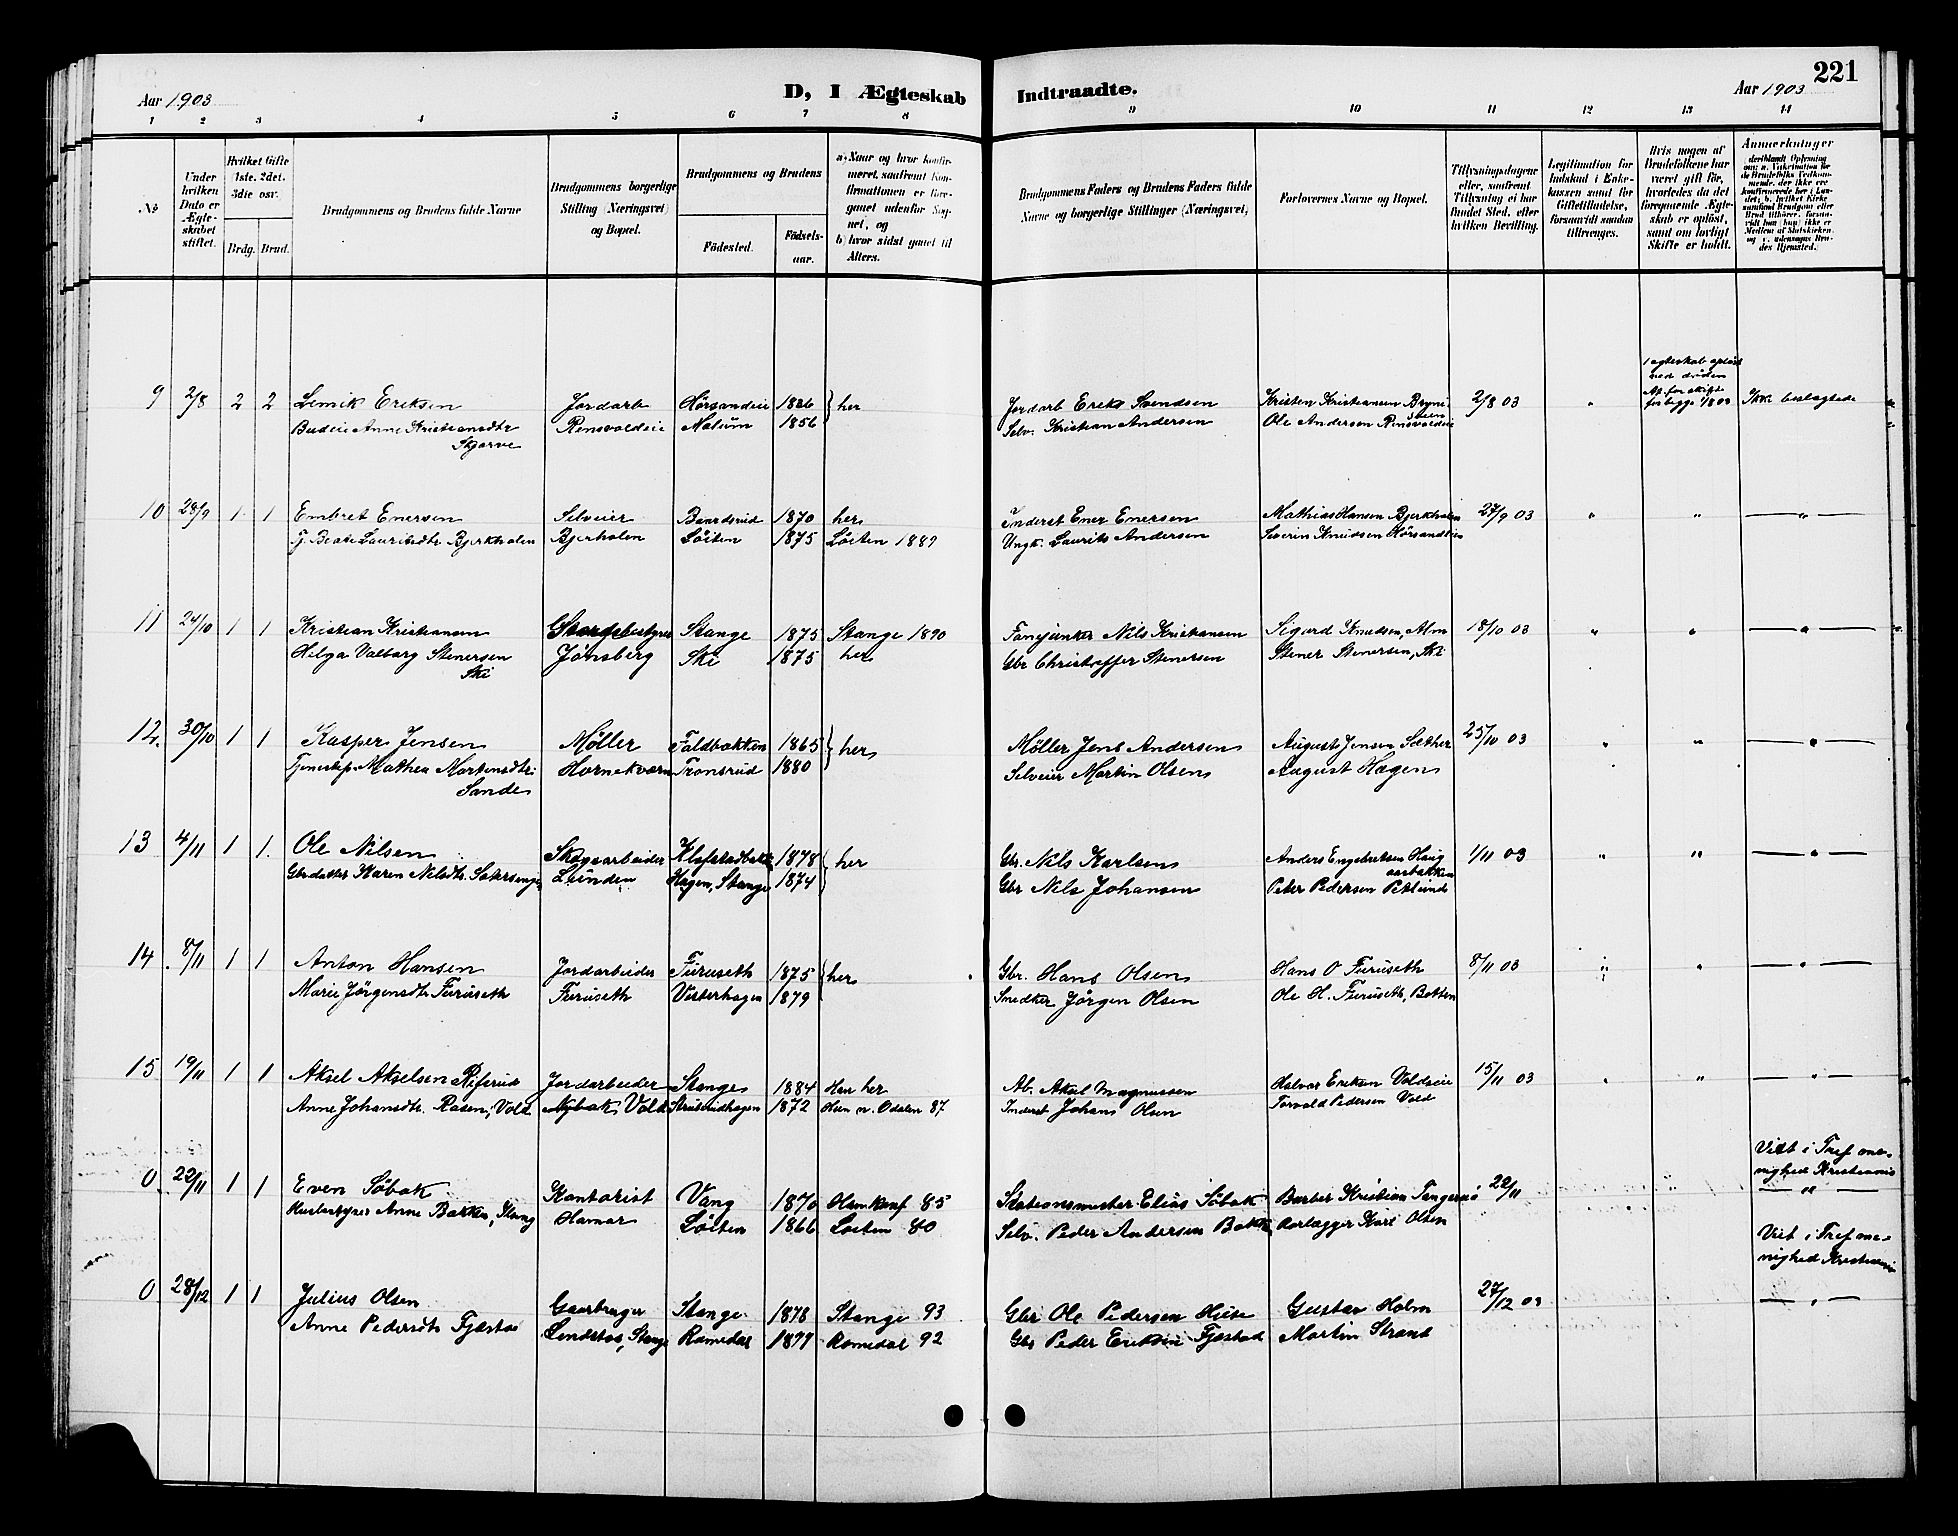 221
Aar 1903
D, I Ægteskab Indtraadte.
Aar 1903
1 2 3 4 5 6 7 8 9 10 11 12 13 14
No
Under hvilken Dato er Ægteskabet stiftet.
Hvilket Gifte 1ste. 2det. 3die osv.
Brdg. Brud.
Brudgommens og Brudens fulde Navne
Brudgommens borgerlige Stilling (Næringsvei) og Bopæl.
Brudgommens og Brudens
Födested.
Födselsaar.
a) Naar og hvor konfirmeret, saafremt Konfirmationen er foregaaet udenfor Sognet, og
b) hvor sidst gaaet til Alters.
Brudgommens Faders og Brudens Faders fulde Navne og borgerlige Stillinger (Næringsvei)
Forlovernes Navne og Bopæl.
Tillysningsdagene eller, saafremt Tillysning ei har fundet Sted, efter hvilken Bevilling.
Legitimation for Indskud i Enkekassen samt for Giftetilladelse, forsaavidt saadan tiltrænges.
Hvis nogen af Brudefolkene har været gift för, hvorledes da det foregaaende Ægteskab er oplöst, samt om lovligt Skifte er holdt.
Anmærkninger
9 2/8 2 2 Lemik Eriksen Jordarb Hörsandeie 1826 her Jordarb Erik Svendsen Kristen Kristiansen Brynisveen 2/8 03 Ikke beslægtede
Budeie Anne Kristiansdtr Skjærve Rensvoldeie Nalum 1856 Selv. Kristian Andersen Ole Andersen Rensvoldeie
10 28/9 1 1 Embret Enersen Selveier Baardsrud 1870 her Inderst Ener Enersen Mathias Hansen Bjerkholen 27/9 03 " " "
Beate Lauritsdtr Bjerkholen Bjerholen Löiten 1875 Löiten 1889 Ungk. Laurits Andersen Severin Knudsen Hörsandeie
11 24/10 1 1 Kristian Kristiansen Gaardsbestyrer Stange 1875 Stange 1890 Fanejunker Nils Kristiansen Sigurd Knudsen, Alm 18/10 03 " " "
Helga Valborg Stenersen Ski Jønsberg Ski 1875 her Gbr Christoffer Stenersen Stener Stenersen, Ski
12. 30/10 1 1 Kasper Jensen Møller Faldbakken 1865 her Møller Jens Andersen August Jensen Sæther 25/10 03 " " "
Tjenestep. Mathea Martinsdtr Sande Hornekværn Tronsrud 1880 Selveier Martin Olsen August Hagen
13 4/11 1 1. Ole Nilsen Skogsarbeider Klofstadbakk 1878 her Gbr. Nils Karlsen Anders Engebretsen Haugaarbakken 1/11 03 " " "
Gbrdatter Karen Nilsdtr. Sætersenge Lunden Hagen, Stange 1874 Gbr Nils Johansen Peter Pedersen Petlund
14 8/11 1 1 Anton Hansen Jordarbeider Furuseth 1875 her Gbr. Hans Olsen Hans O Furuseth 8/11 03 " " "
Marie Jörgensdtr Furuseth Furuseth Vesterhagen 1879 Snedker Jörgen Olsen Ole H. Furuseth, Botten
15 19/11 1 1 Aksel Akselsen Riserud Jordarbeider Stange 1884 Han her Ab. Aksel Magnussen Halvor Eriksen Voldseie 15/11 03 " " "
Anne Johansdtr. Rasen, Vold Nybak, Vold 1872 Hun n. Odalen 87 Inderst Johans Olsen Torvald Pedersen Vold
0 22/11 1 1 Even Söbak Kontorist Vang 1870 Ham konf 85 Stationsmester Elias Söbak Barber Kristian Tangersö 22/11 Viet i Tref menighed Kristiania
Husbestyrer Anne Bakken, Stang Hamar Löiten 1866 Löiten 80 Selv. Peder Andersen Bakk Karl Olsen
0 28/12 1 1 Julius Olsen Gaardbruger Stange 1878 Stange 93 Gbr Ole Pedersen Gustav Holm 27/12 03 Viet i Tref menighed Kristiania
Anne Pedersdtr Fjæstad Stange Romedal 1877 Romedal 92 Gbr Peder Eriksen Fjæstad Martin Strand